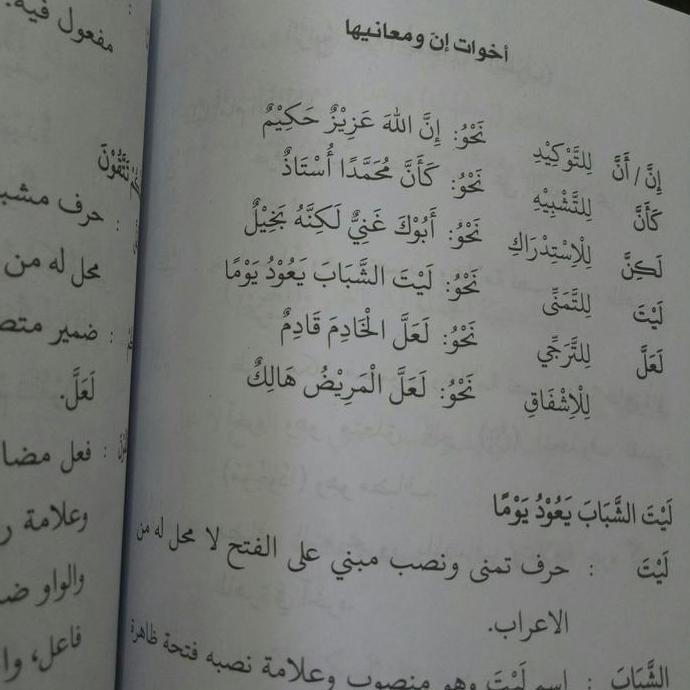 أخوات إنّ ومعانيها
إِنَّ / أَنَّ لِلتَّوْكِيْدِ نَحْوُ: إِنَّ اللهَ عَزِيْزٌ حَكِيْمٌ
كَأَنَّ لِلتَّشْبِيْهِ نَحْوُ: كَأَنَّ مُحَمَّدًا أُسْتَاذٌ
لَكِنَّ لِلْاِسْتِدْرَاكِ نَحْوُ: أَبُوْكَ غَنِيٌّ لَكِنَّهُ بَخِيْلٌ
لَيْتَ لِلتَّمَنِّى نَحْوُ: لَيْتَ الشَّبَابَ يَعُوْدُ يَوْمًا
لَعَلَّ لِلتَّرَجِّي نَحْوُ: لَعَلَّ الْخَادِمَ قَادِمٌ
لِلْاِشْفَاقِ نَحْوُ: لَعَلَّ الْمَرِيْضُ هَالِكٌ
لَيْتَ الشَّبَابَ يَعُوْدُ يَوْمًا
لَيْتَ : حرف تمنى ونصب مبني على الفتح لا محل له من
الاعراب.
الشَّبَابَ : اسم لَيْتَ وهو منصوب وعلامة نصبه فتحة ظاهرة
مفعول فيه.
حرف مشب
محل له من
ضمير متص
لَعَلَّ.
فعل مضا
وعلامة ر
والواو ض
فاعل، وا